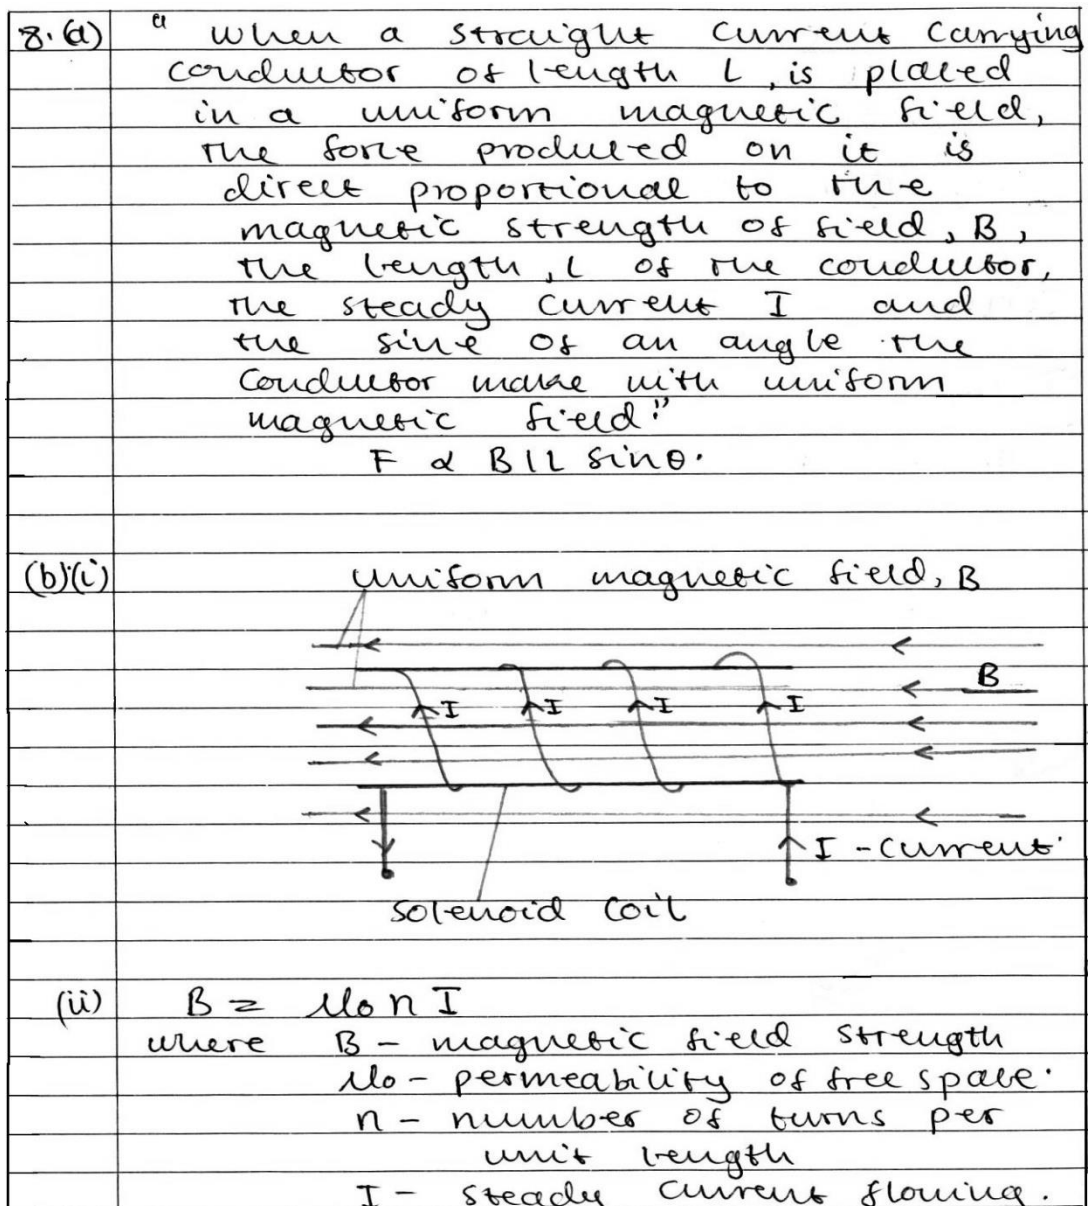 8.(a) " When a straight current carrying
conductor of length L, is placed
in a uniform magnetic field,
the force produced on it is
direct proportional to the
magnetic strength of field, B,
the length, L of the conductor,
the steady current I and
the sine of an angle the
conductor make with uniform
magnetic field."
F α BIL sinθ.
(b)(i) Uniform magnetic field, B
B
I I I I
I - current.
solenoid coil
(ii) B = μo n I
where B - magnetic field strength
μo - permeability of free space.
n - number of turns per
unit length
I - steady current flowing.